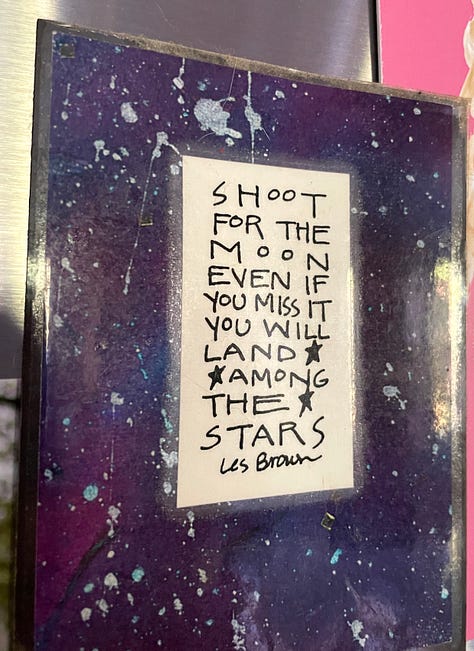 SHOOT
FOR THE
MOON
EVEN IF
YOU MISS IT
YOU WILL
LAND ★
★ AMONG
THE ★
STARS
Les Brown